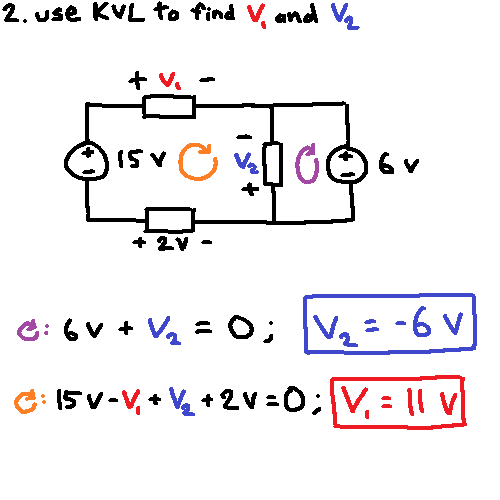 2. use KVL to find V₁ and V₂
+ V₁ -
+
-
15 V
-
V₂
+
+
-
6 V
+ 2V -
: 6V + V₂ = 0; V₂ = -6 V
: 15V - V₁ + V₂ + 2V = 0; V₁ = 11 V